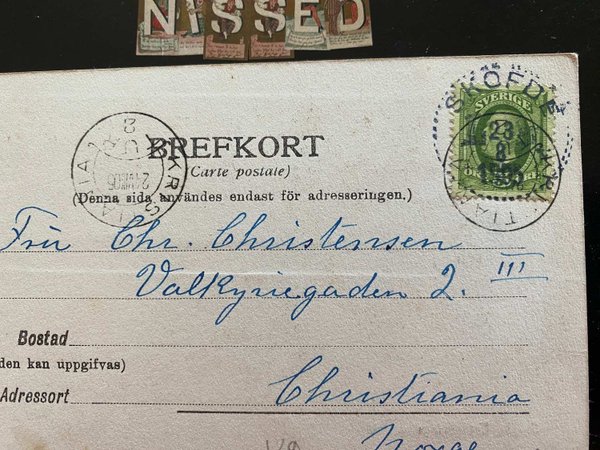 NISSED
SKÖFDE
SVERIGE
23
8
1905
BREFKORT
(Carte postale)
(Denna sida användes endast för adresseringen.)
Fru Chr. Christensen
Valkyriegaden 2. III
Bostad
den kan uppgifvas)
Adressort
Christiania
Norge